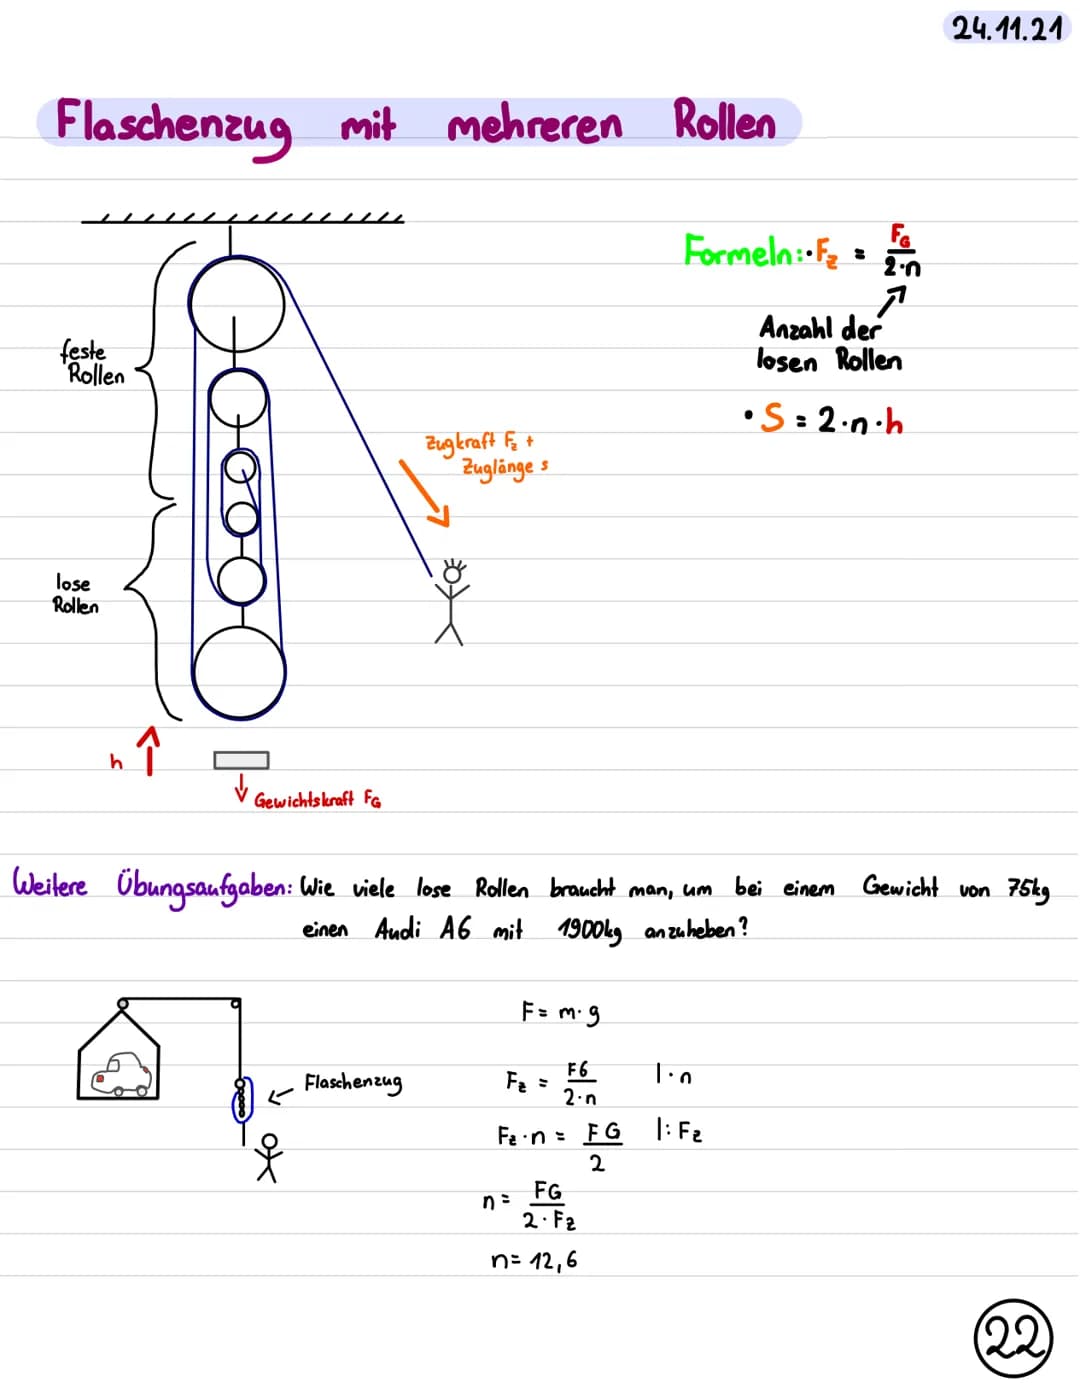 24.11.21
Flaschenzug mit mehreren Rollen
Formeln: • F_Z = F_G / 2·n
Anzahl der
losen Rollen
• S = 2·n·h
feste
Rollen
Zugkraft F_Z +
Zuglänge s
lose
Rollen
h
Gewichtskraft F_G
Weitere Übungsaufgaben: Wie viele lose Rollen braucht man, um bei einem Gewicht von 75kg
einen Audi A6 mit 1900kg anzuheben?
Flaschenzug
F = m·g
F_Z = FG / 2·n |·n
F_Z·n = FG / 2 |: F_Z
n = FG / 2·F_Z
n = 12,6
22